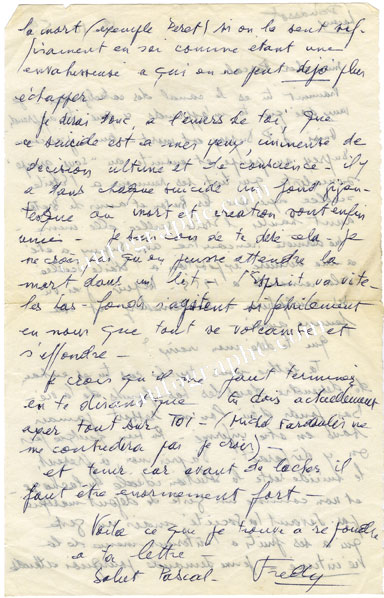 la mort (exemple Peret) si on la sent suf-
fisamment en soi comme etant une
envahisseuse a qui on ne peut dejà plus
échapper.
Je dirai donc, à l'envers de toi, que
ce suicide est a mes yeux, immense de
decision ultime et de conscience - il y
a dans chaque suicide un fond gigan-
tesque ou mort et creation sont enfin
unies - Je te dis cela Je
ne crois pas qu'on puisse attendre la
mort dans un lit - l'Esprit va vite
les bas-fonds s'agitent si facilement
en nous que tout se volcanise et
s'effondre -
Je crois qu'il me faut terminer
en te disant que tu dois actuellement
axer tout sur TOI - (Michel ne
me contredira pas je crois) -
et tenir car avant de lacher il
faut etre enormement fort -
Voila ce que je trouve a repondre
a ta lettre -
Salut Pascal - Fredy